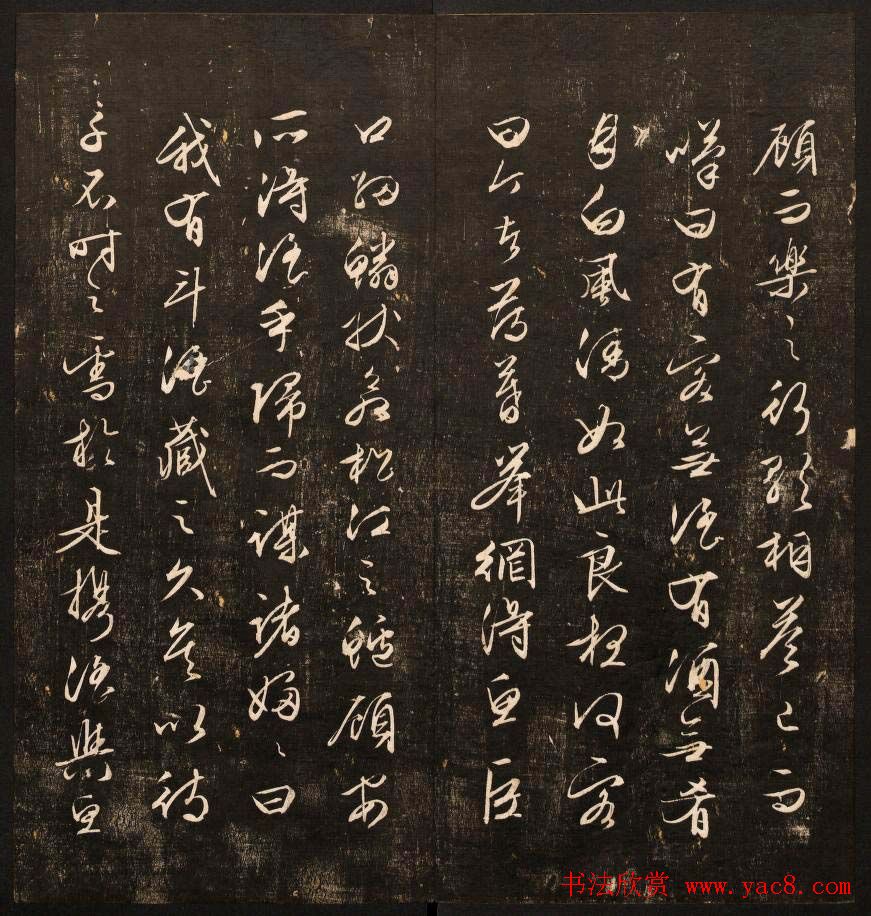 顾而樂之行歌相答已而
嘆曰有客無酒有酒無肴
月白風清如此良夜何客
曰今者薄暮舉網得魚巨
口細鱗狀若松江之鱸顧安
所得酒乎歸而謀諸婦婦曰
我有斗酒藏之久矣以待
子不時之需於是攜酒與魚
书法欣赏 www.yac8.com